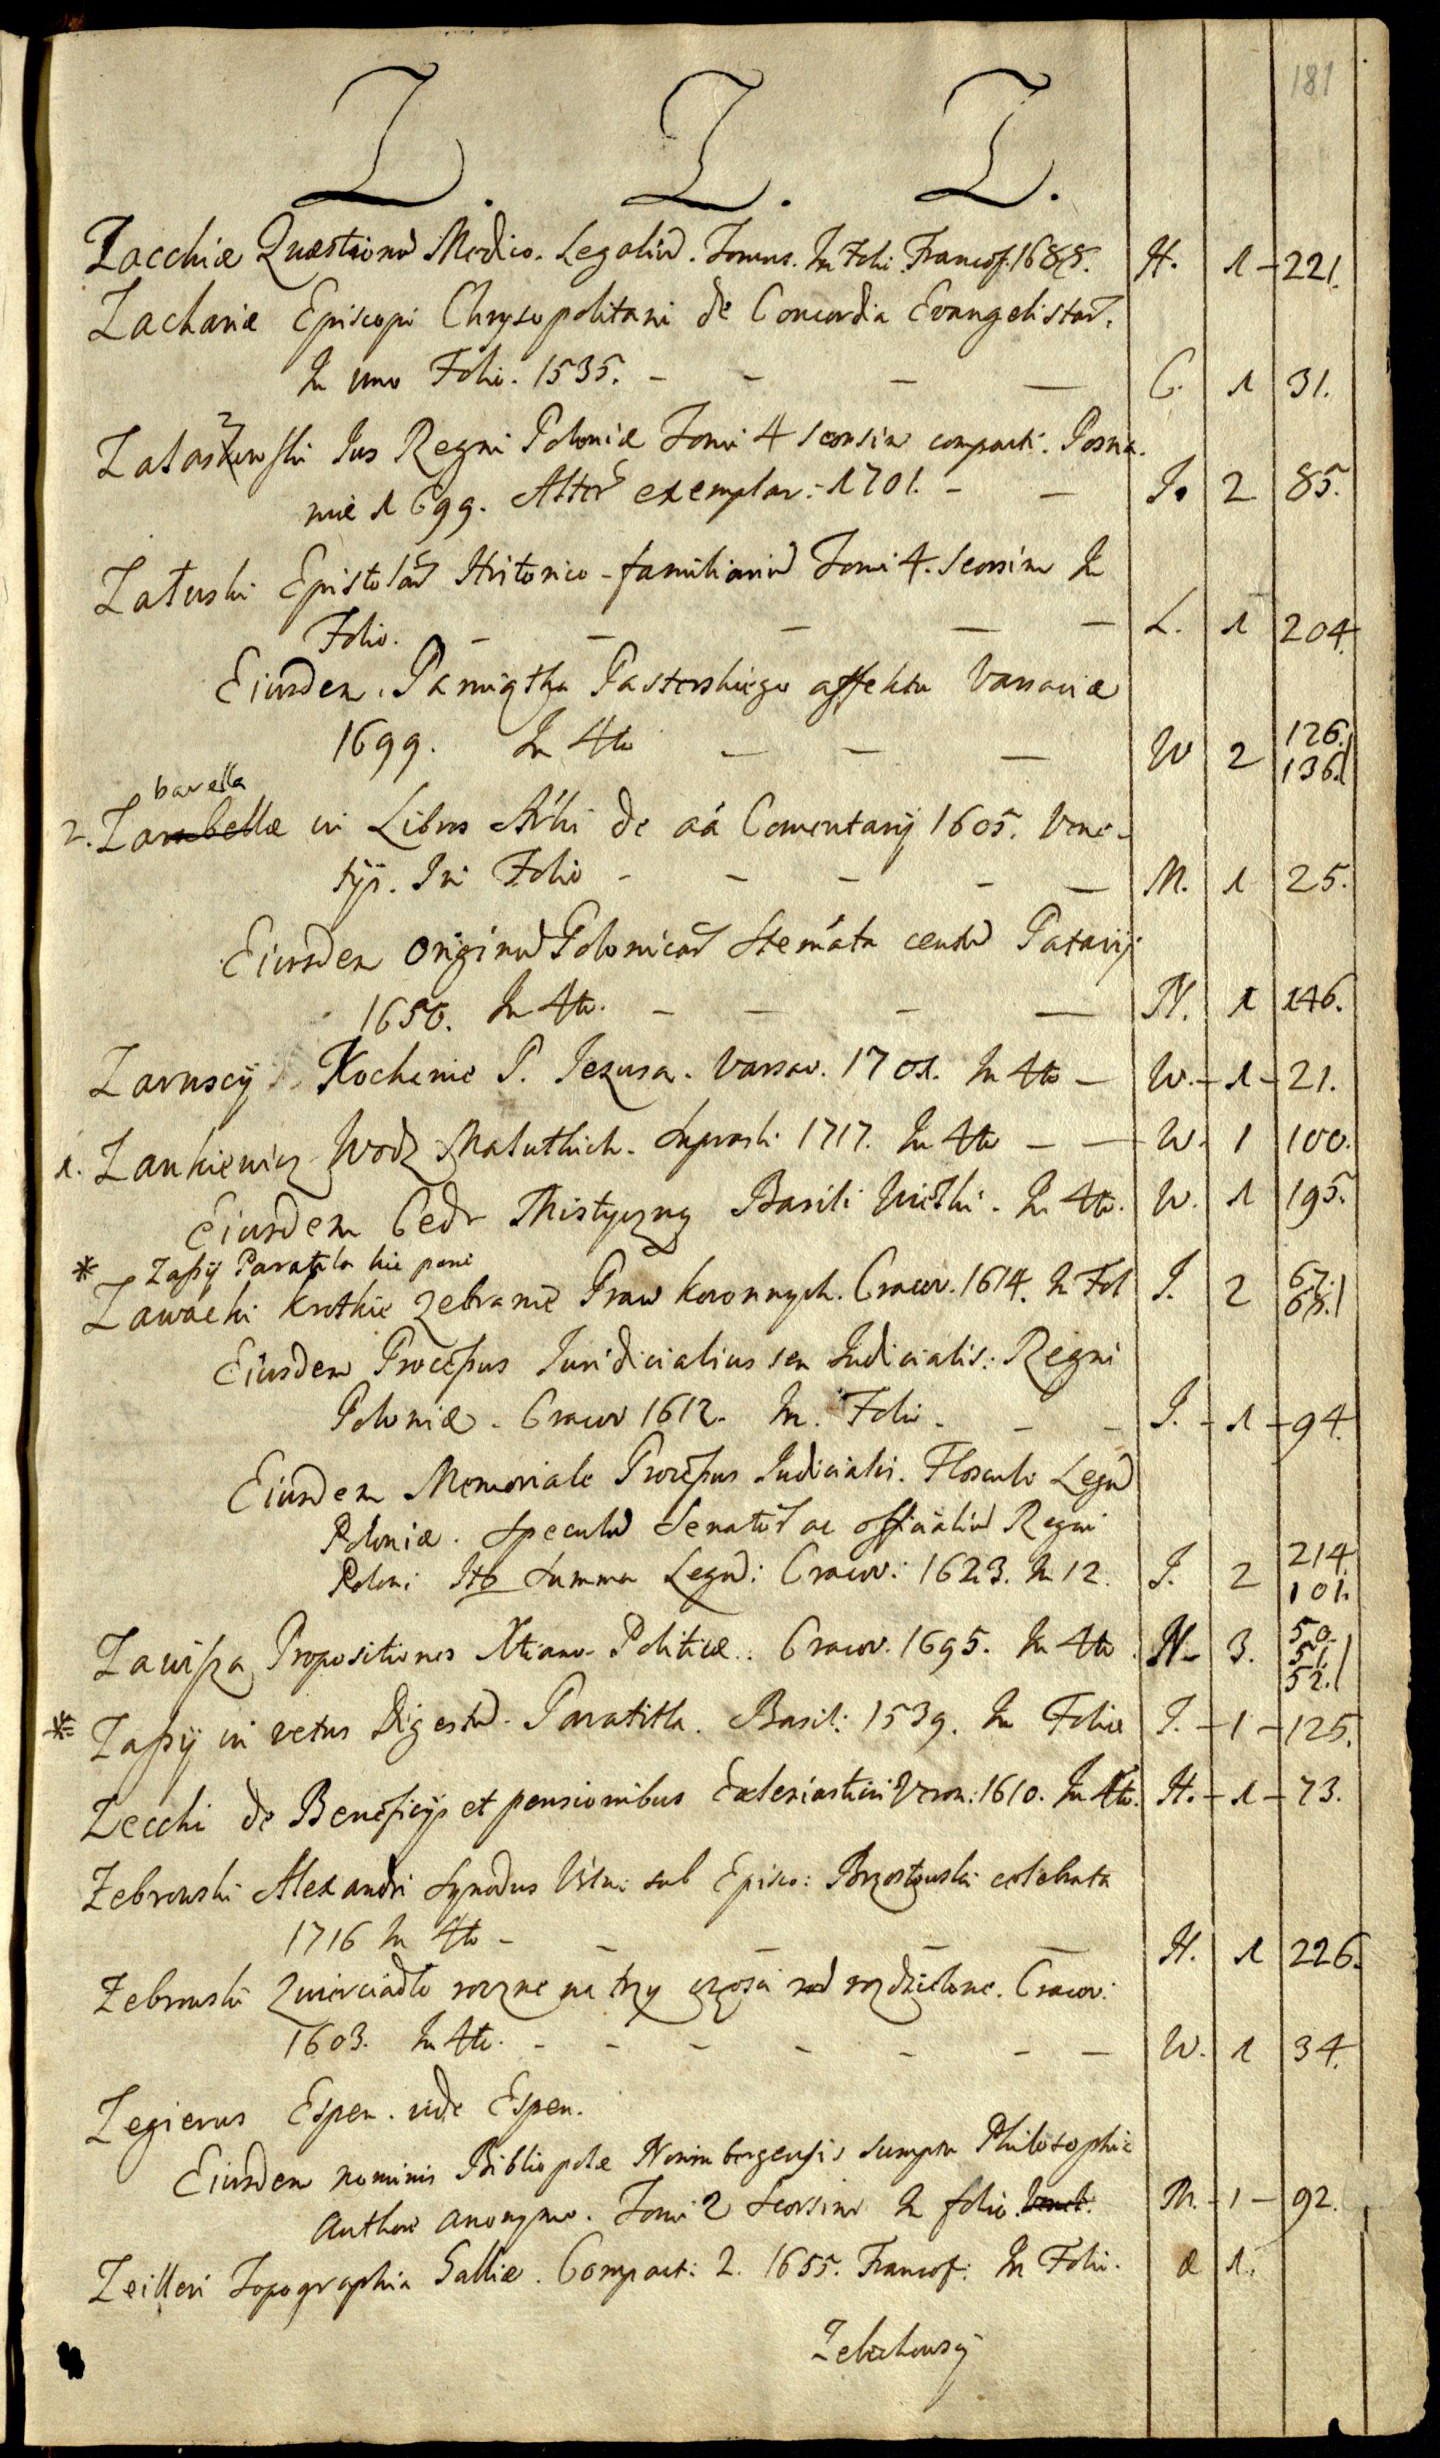 181
Z. Z. Z.
Zacchiæ Quæstionũ Medico-Legaliũ. Tomus. In Folio. Francof. 1688. H. 1 - 221.
Zachariæ Episcopi Chrysopolitani de Concordia Evangelistar̃.
In uno Folio. 1535. - - - - C. 1 31.
Zalaszewski Ius Regni Poloniæ Tomi 4 seorsim compacti. Posna-
niæ 1699. Alter̃ exemplar: 1701. - - I. 2 85.
Załuski Epistolar̃ Historico-familiariũ Tomi 4. Seorsim In
Folio. - - - - - L. 1 204.
Eiusdem Pamiątka Pasterskiego affektu Varsaviæ
1699. In 4to - - - W 2 126. 136.
barella
2. Zambellæ in Libros Ar̃hi de aã Comentarij 1605. Vene-
tijs. In Folio - - - - - M. 1 25.
Eiusdem Originũ Polonicar̃ Stem̃ata centũ Patavij
1656. In 4to. - - - - N. 1 146.
Zaruscij Kochanie P. Jezusa. Varsav. 1701. In 4to - W. - 1 - 21.
1. Zankiewicz Wodz Małutkich. Suprasli 1717. In 4to - - W. 1 100.
Eiusdem Cedr Mistyczny Basili Wielki. In 4to. W. 1 195.
* Zaſsij Paratitla hic poni
Zawacki Krotkie zebranie Praw koronnych. Cracov. 1614. In Fol I. 2 67. 68.
Eiusdem Proceſsus Iuridicialius seu Iudicialis: Regni
Poloniæ. Cracov 1612. In. Folio. - - I. - 1 - 94.
Eiusdem Memoriale Proceſsus Iudicialis. Flosculi Legũ
Poloniæ. Speculũ Senator̃ ac officialiũ Regni
Poloni Itõ Summa Legũ: Cracov: 1623. In 12. I. 2 214. 101.
Zawiſza Propositiones Xtiano-Politicæ.. Cracov. 1695. In 4to. N. 3. 50. 51. 52.
* Zaſsij in vetus Digestũ. Paratitla. Basil: 1539. In Folio I. - 1 - 125.
Zecchi de Beneficijs et pensionibus Ecclesiasticis Veron: 1610. In 4to. H. - 1 - 73.
Zebrowski Alexandri Synodus Viln: sub Episco: Brzostowski celebrata
1716 In 4to - - - - - H. 1 226.
Żebrowski Zwierciadło roczne na trzy częsci rozdzielone. Cracov:
1603. In 4to. - - - - - - - W. 1 34.
Zegierus Espen. vide Espen.
Eiusdem nominis Bibliopolæ Norimbergensis sumptu Philosophiæ
Authore anonymo. Tomi 2 Seorsim In folio. M. - 1 - 92.
Zeilleri Topographia Galliæ. Compact: 2. 1655. Francof: In Folio. æ 1.
Zelechowsij